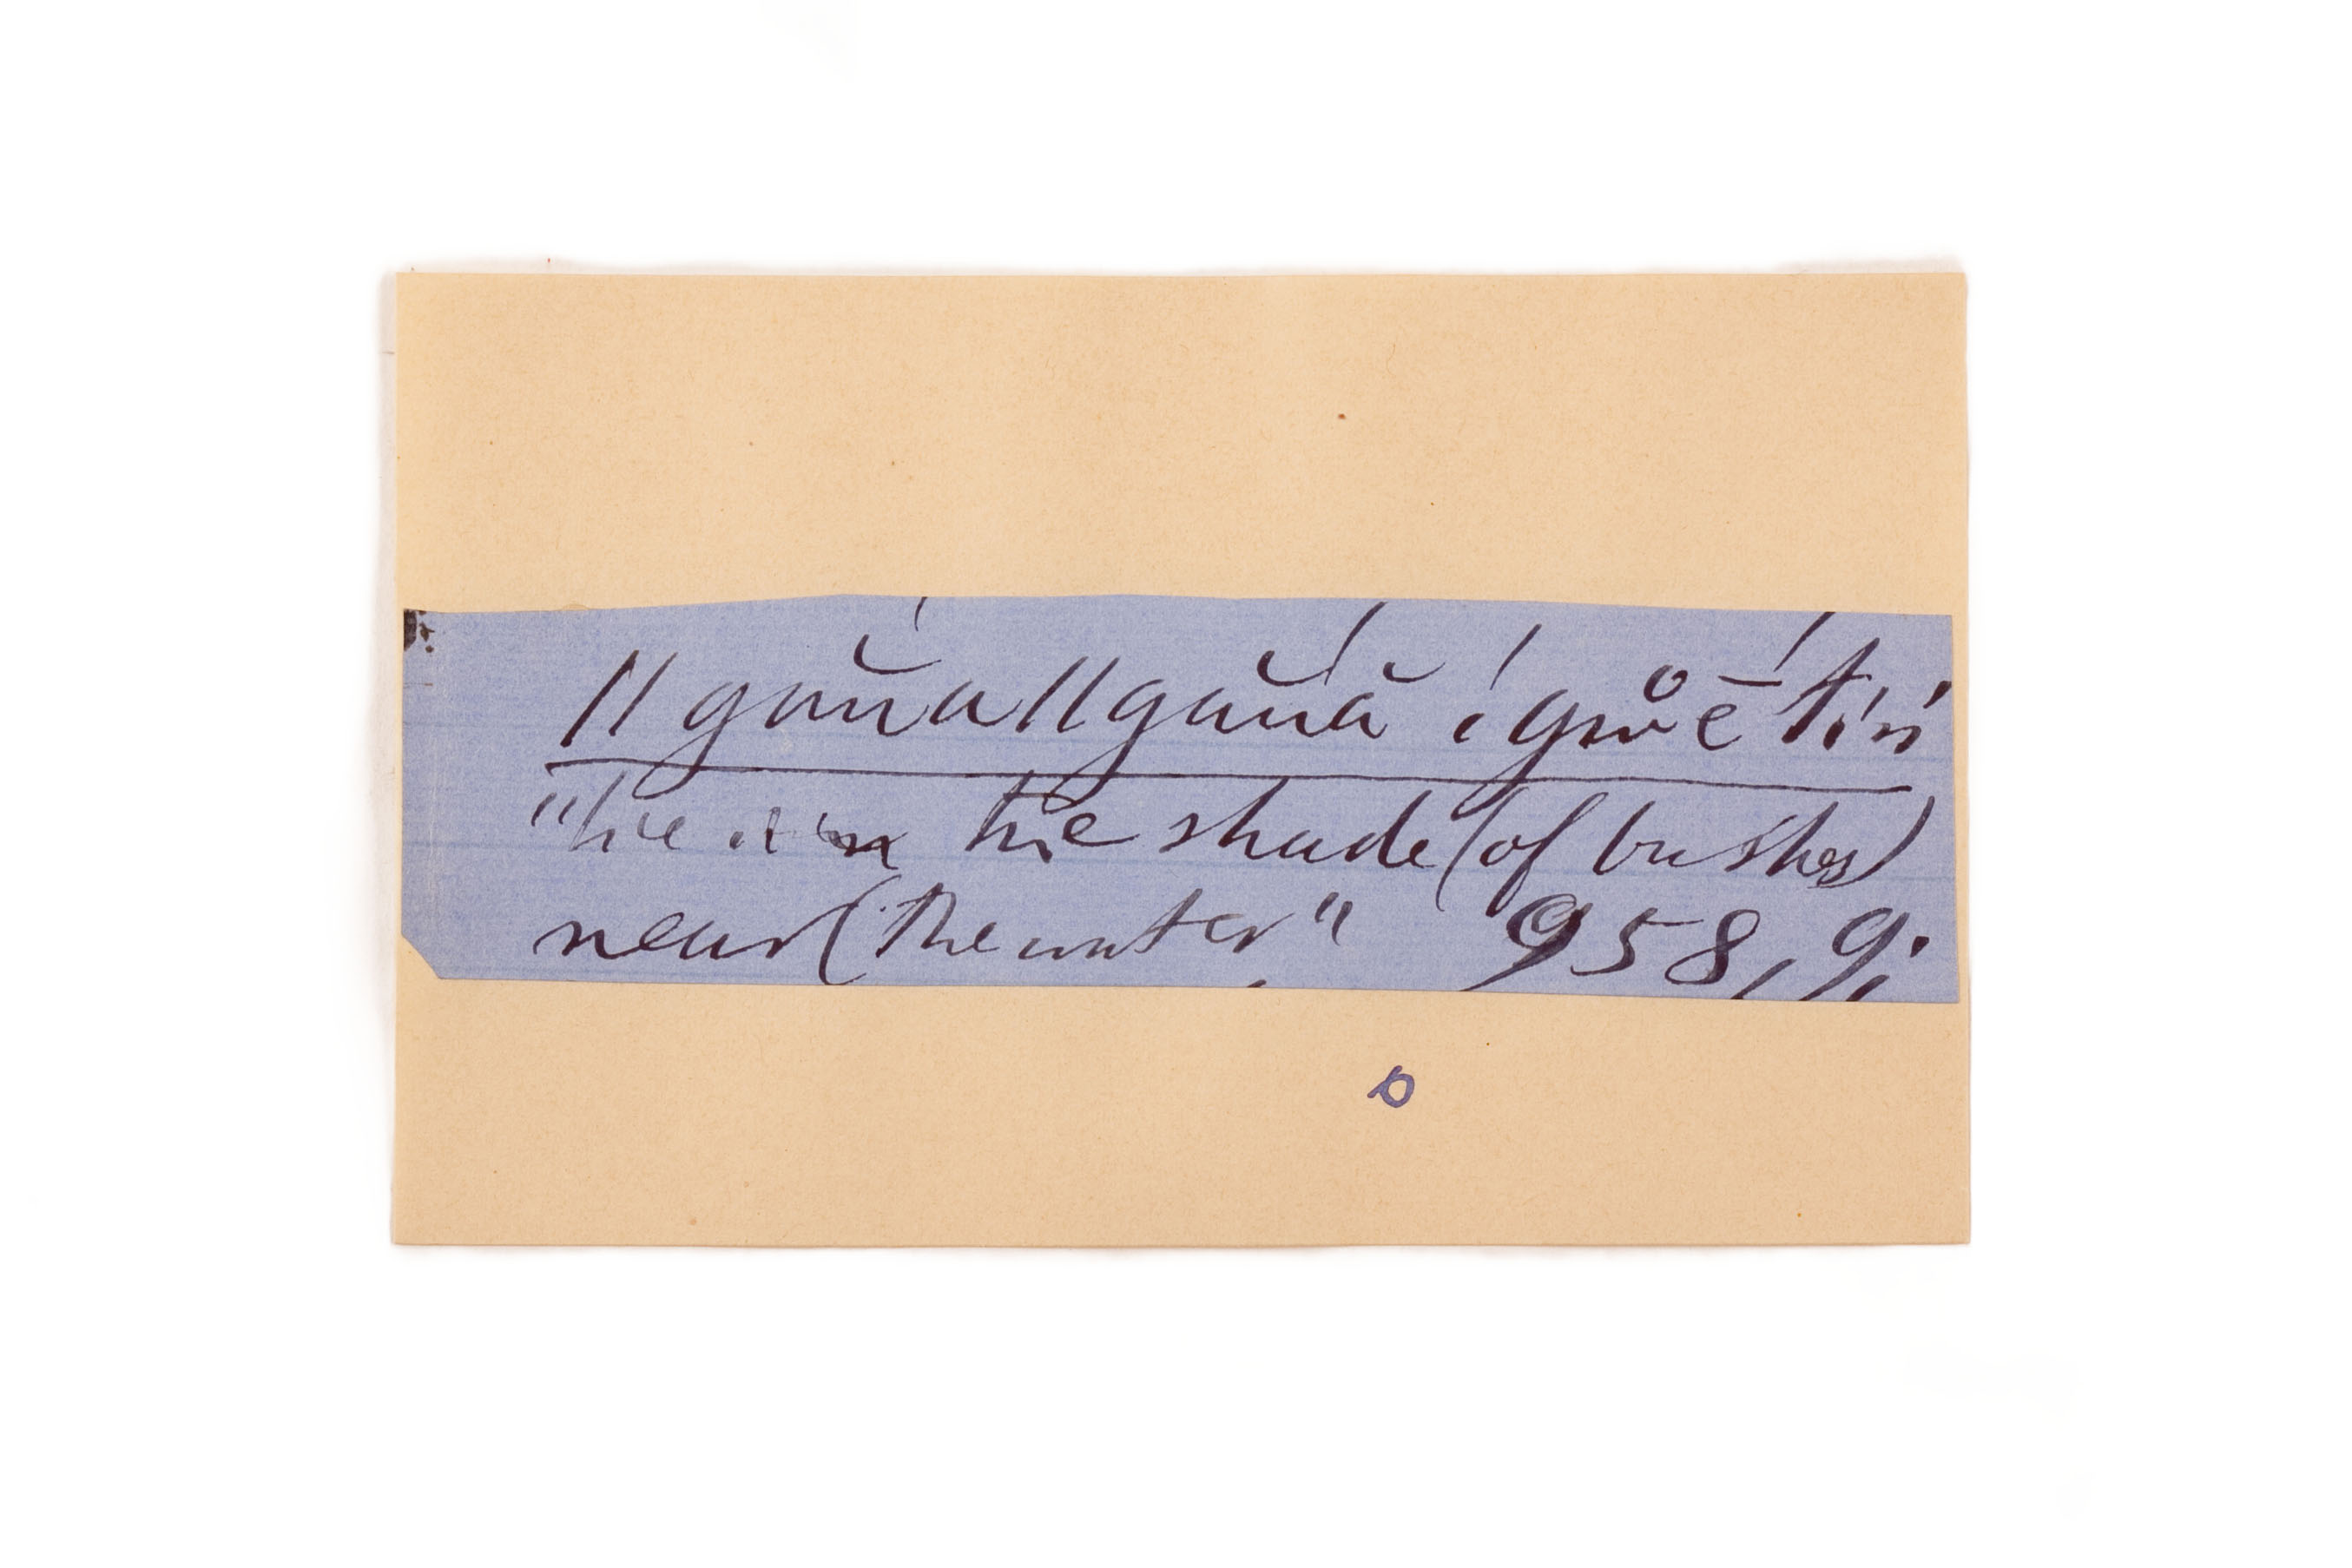 //gauna//gaŭnă í gŭŏē tíń
"lie in the shade (of bushes)
near (the water" 958, 9.